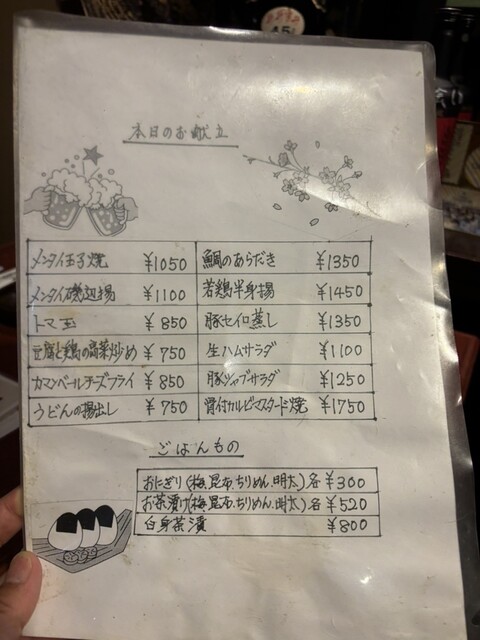 本日のお献立
メンタイ玉子焼 ¥1050 鯛のあらだき ¥1350
メンタイ磯辺揚 ¥1100 若鶏半身揚 ¥1450
トマ玉 ¥850 豚セイロ蒸し ¥1350
豆腐と鶏の高菜炒め ¥750 生ハムサラダ ¥1100
カマンベールチーズフライ ¥850 豚シャブサラダ ¥1250
うどんの揚出し ¥750 骨付カルビマスタード焼 ¥1750
ごはんもの
おにぎり(梅.昆布.ちりめん.明太)各 ¥300
お茶漬け(梅.昆布.ちりめん.明太)各 ¥520
白身茶漬 ¥800